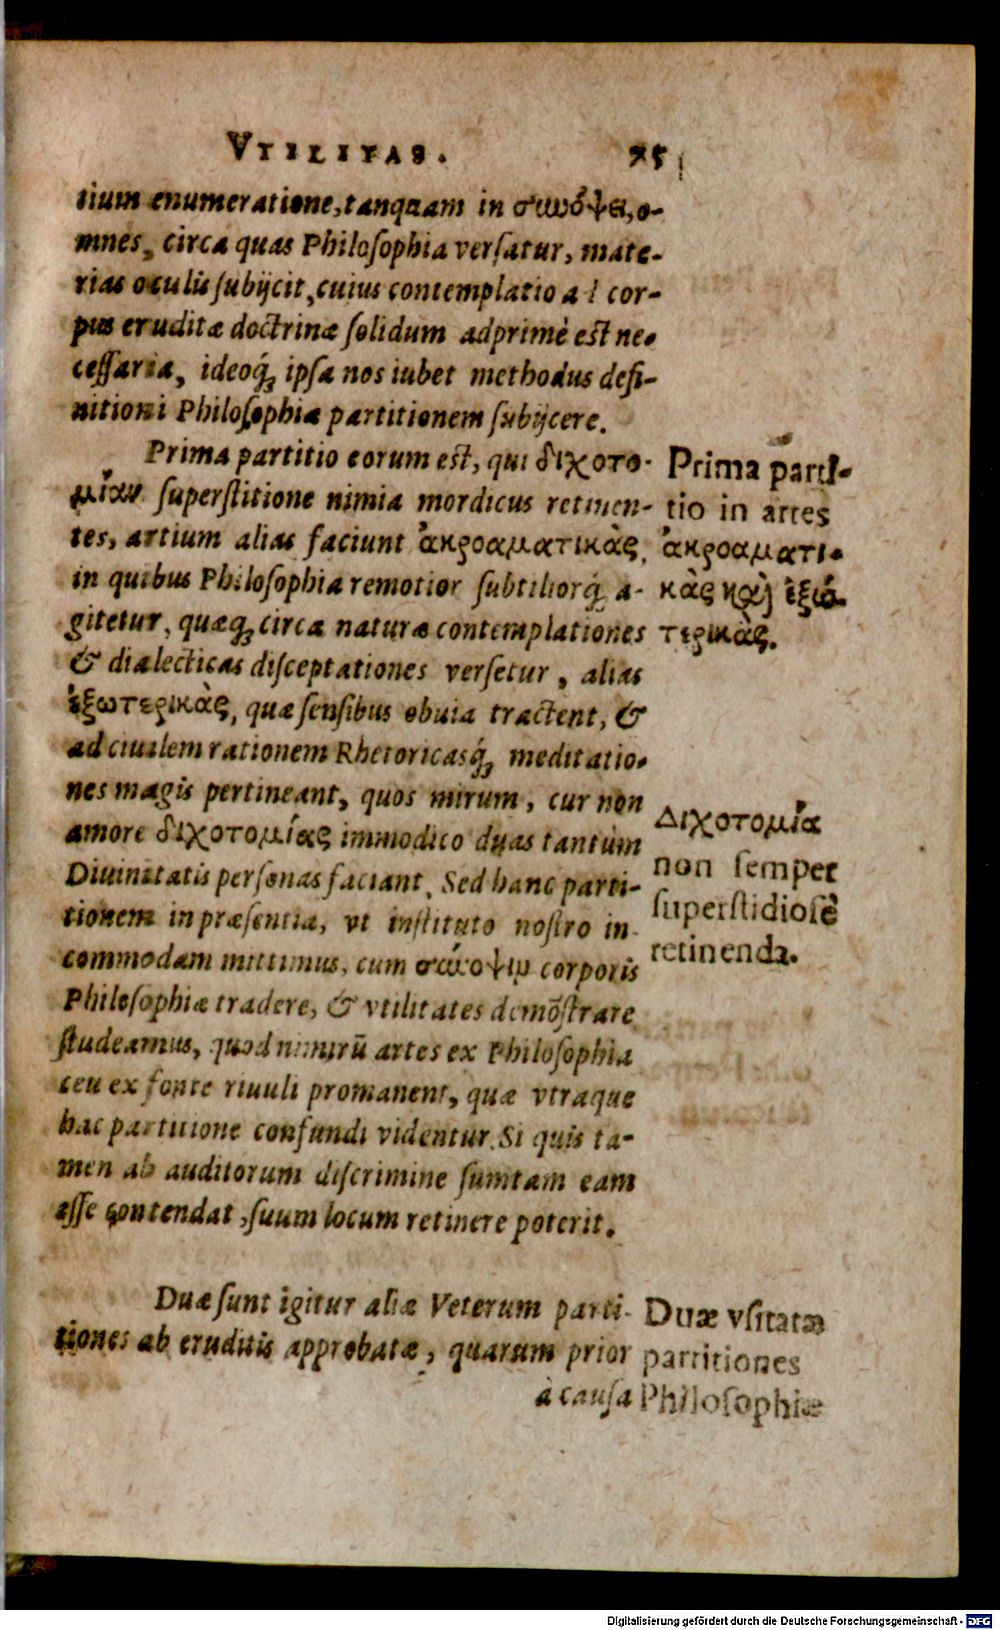 VTILITAS. 75
tium enumeratione, tanquam in συνόψει, o-
mnes, circa quas Philosophia versatur, mate-
rias oculis subijcit, cuius contemplatio ad cor-
pus eruditæ doctrinæ solidum adprimè est ne-
cessaria, ideoq́ꝫ ipsa nos iubet methodus defi-
nitioni Philosophiæ partitionem subijcere.
Prima partitio eorum est, qui διχοτο-
μίαν superstitione nimia mordicus retinen-
tes, artium alias faciunt ἀκροαματικὰς,
in quibus Philosophia remotior subtiliorq́ꝫ a-
gitetur, quæq́ꝫ circa naturæ contemplationes
& dialecticas disceptationes versetur, alias
ἐξωτερικὰς, quæ sensibus obuia tractent, &
ad ciuilem rationem Rhetoricasq́ꝫ meditatio-
nes magis pertineant, quos mirum, cur non
amore διχοτομίας immodico duas tantùm
Diuinitatis personas faciant. Sed hanc parti-
tionem in præsentia, vt instituto nostro in-
commodam mittimus, cum σύνοψιν corporis
Philosophiæ tradere, & vtilitates demõstrare
studeamus, quod nimirũ artes ex Philosophia
ceu ex fonte riuuli promanent, quæ vtraque
hac partitione confundi videntur. Si quis ta-
men ab auditorum discrimine sumtam eam
esse contendat, suum locum retinere poterit.
Duæ sunt igitur aliæ Veterum parti-
tiones ab eruditis approbatæ, quarum prior
à causa
Prima parti-
tio in artes
ἀκροαματι-
κὰς καὶ ἐξω-
τερικὰς.
Διχοτομία
non semper
superstidiosè
retinenda.
Duæ vsitatæ
partitiones
Philosophiæ
Digitalisierung gefördert durch die Deutsche Forschungsgemeinschaft - DFG